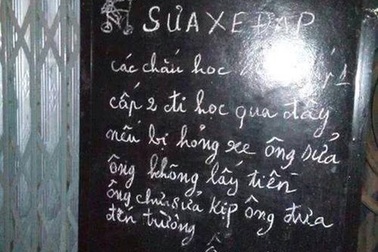 SỬA XE ĐẠP
các cháu học
cấp 2 đi học qua đây
nếu bị hỏng xe ông sửa
ông không lấy tiền
ông chữa sửa kịp ông đưa
đến trường